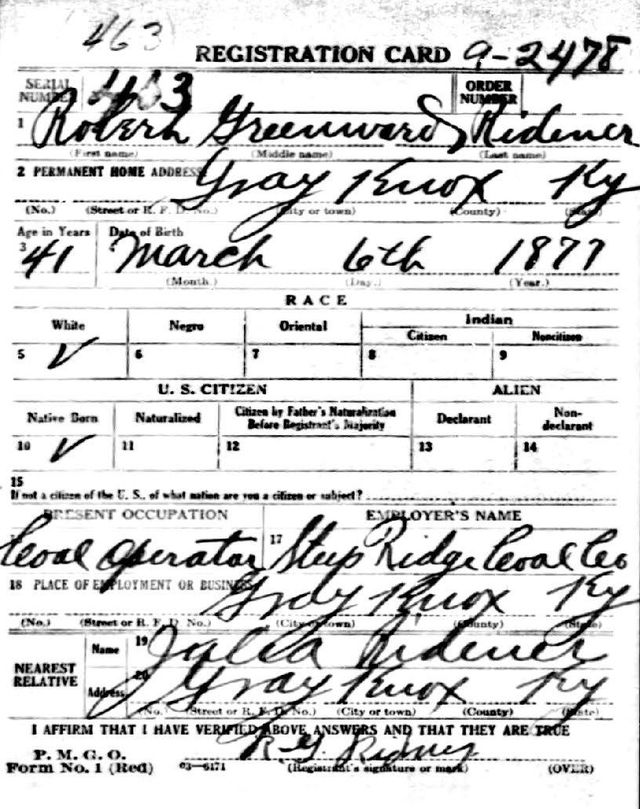 463
REGISTRATION CARD 9-2478
SERIAL NUMBER 463 ORDER NUMBER
1 Robert Greenward Ridener
(First name) (Middle name) (Last name)
2 PERMANENT HOME ADDRESS Gray Knox Ky
(No.) (Street or R. F. D. No.) (City or town) (County) (State)
Age in Years Date of Birth
3 41 March 6th 1877
(Month.) (Day.) (Year.)
RACE
White Negro Oriental Indian
Citizen Noncitizen
5 ✓ 6 7 8 9
U. S. CITIZEN ALIEN
Native Born Naturalized Citizen by Father's Naturalization Before Registrant's Majority Declarant Non-declarant
10 ✓ 11 12 13 14
15
If not a citizen of the U. S., of what nation are you a citizen or subject?
PRESENT OCCUPATION EMPLOYER'S NAME
Coal Operator 17 Steep Ridge Coal Co
18 PLACE OF EMPLOYMENT OR BUSINESS Gray Knox Ky
(No.) (Street or R. F. D. No.) (City or town) (County) (State)
NEAREST RELATIVE
Name 19 Julia Ridener
Address 20 Gray Knox Ky
(No.) (Street or R. F. D. No.) (City or town) (County) (State)
I AFFIRM THAT I HAVE VERIFIED ABOVE ANSWERS AND THAT THEY ARE TRUE
P. M. G. O. R. G. Ridener
Form No. 1 (Red) 03—6171 (Registrant's signature or mark) (OVER)